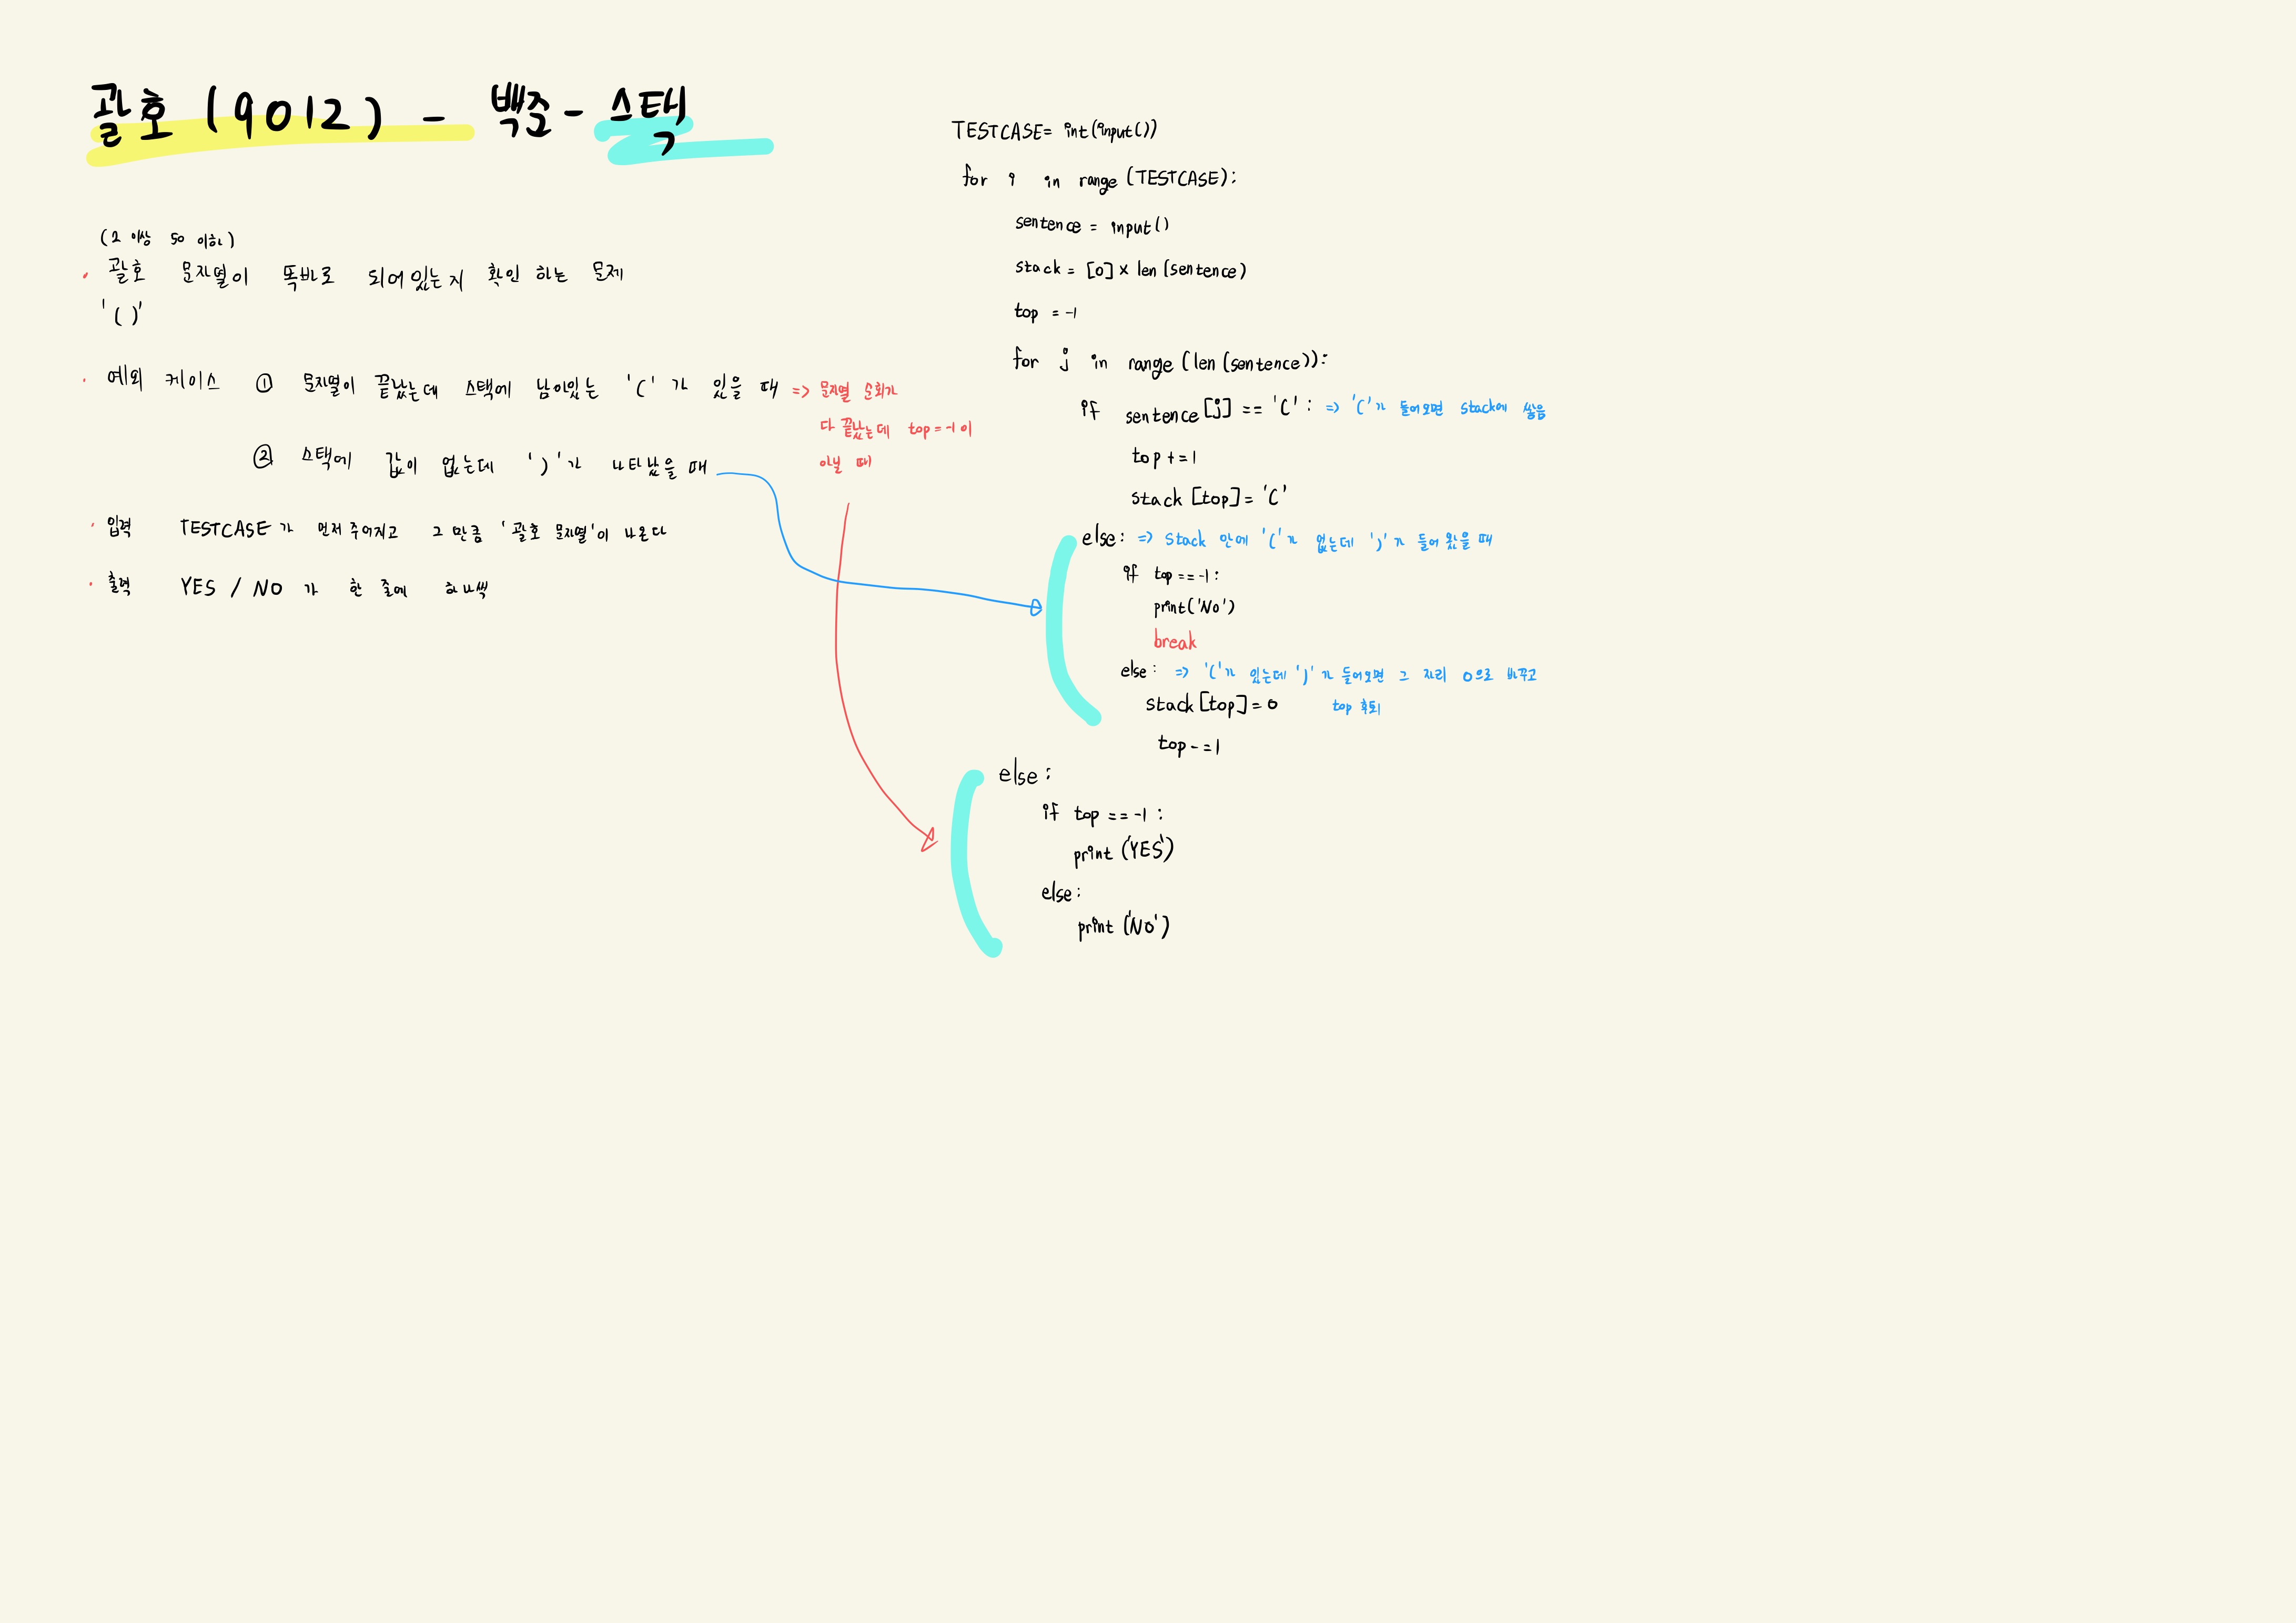 괄호 (9012) - 백준 - 스택
(2 이상 50 이하)
· 괄호 문자열이 똑바로 되어있는지 확인 하는 문제
'( )'
· 예외 케이스 ① 문자열이 끝났는데 스택에 남아있는 '(' 가 있을 때 => 문자열 순회가
다 끝났는데 top = -1 이
아닐 때
② 스택에 값이 없는데 ')'가 나타났을 때
· 입력 TESTCASE 가 먼저 주어지고 그 만큼 '괄호 문자열'이 나온다
· 출력 YES / NO 가 한 줄에 하나씩
TESTCASE = int(input())
for i in range (TESTCASE):
sentence = input()
stack = [0] × len (sentence)
top = -1
for j in range (len (sentence)):
if sentence [j] == '(' : => '('가 들어오면 stack에 쌓음
top += 1
stack [top] = '('
else: => stack 안에 '('가 없는데 ')'가 들어왔을 때
if top == -1:
print('No')
break
else: => '('가 있는데 ')'가 들어오면 그 자리 0으로 바꾸고
stack [top] = 0 top 후퇴
top -= 1
else:
if top == -1 :
print ('YES')
else:
print ('No')